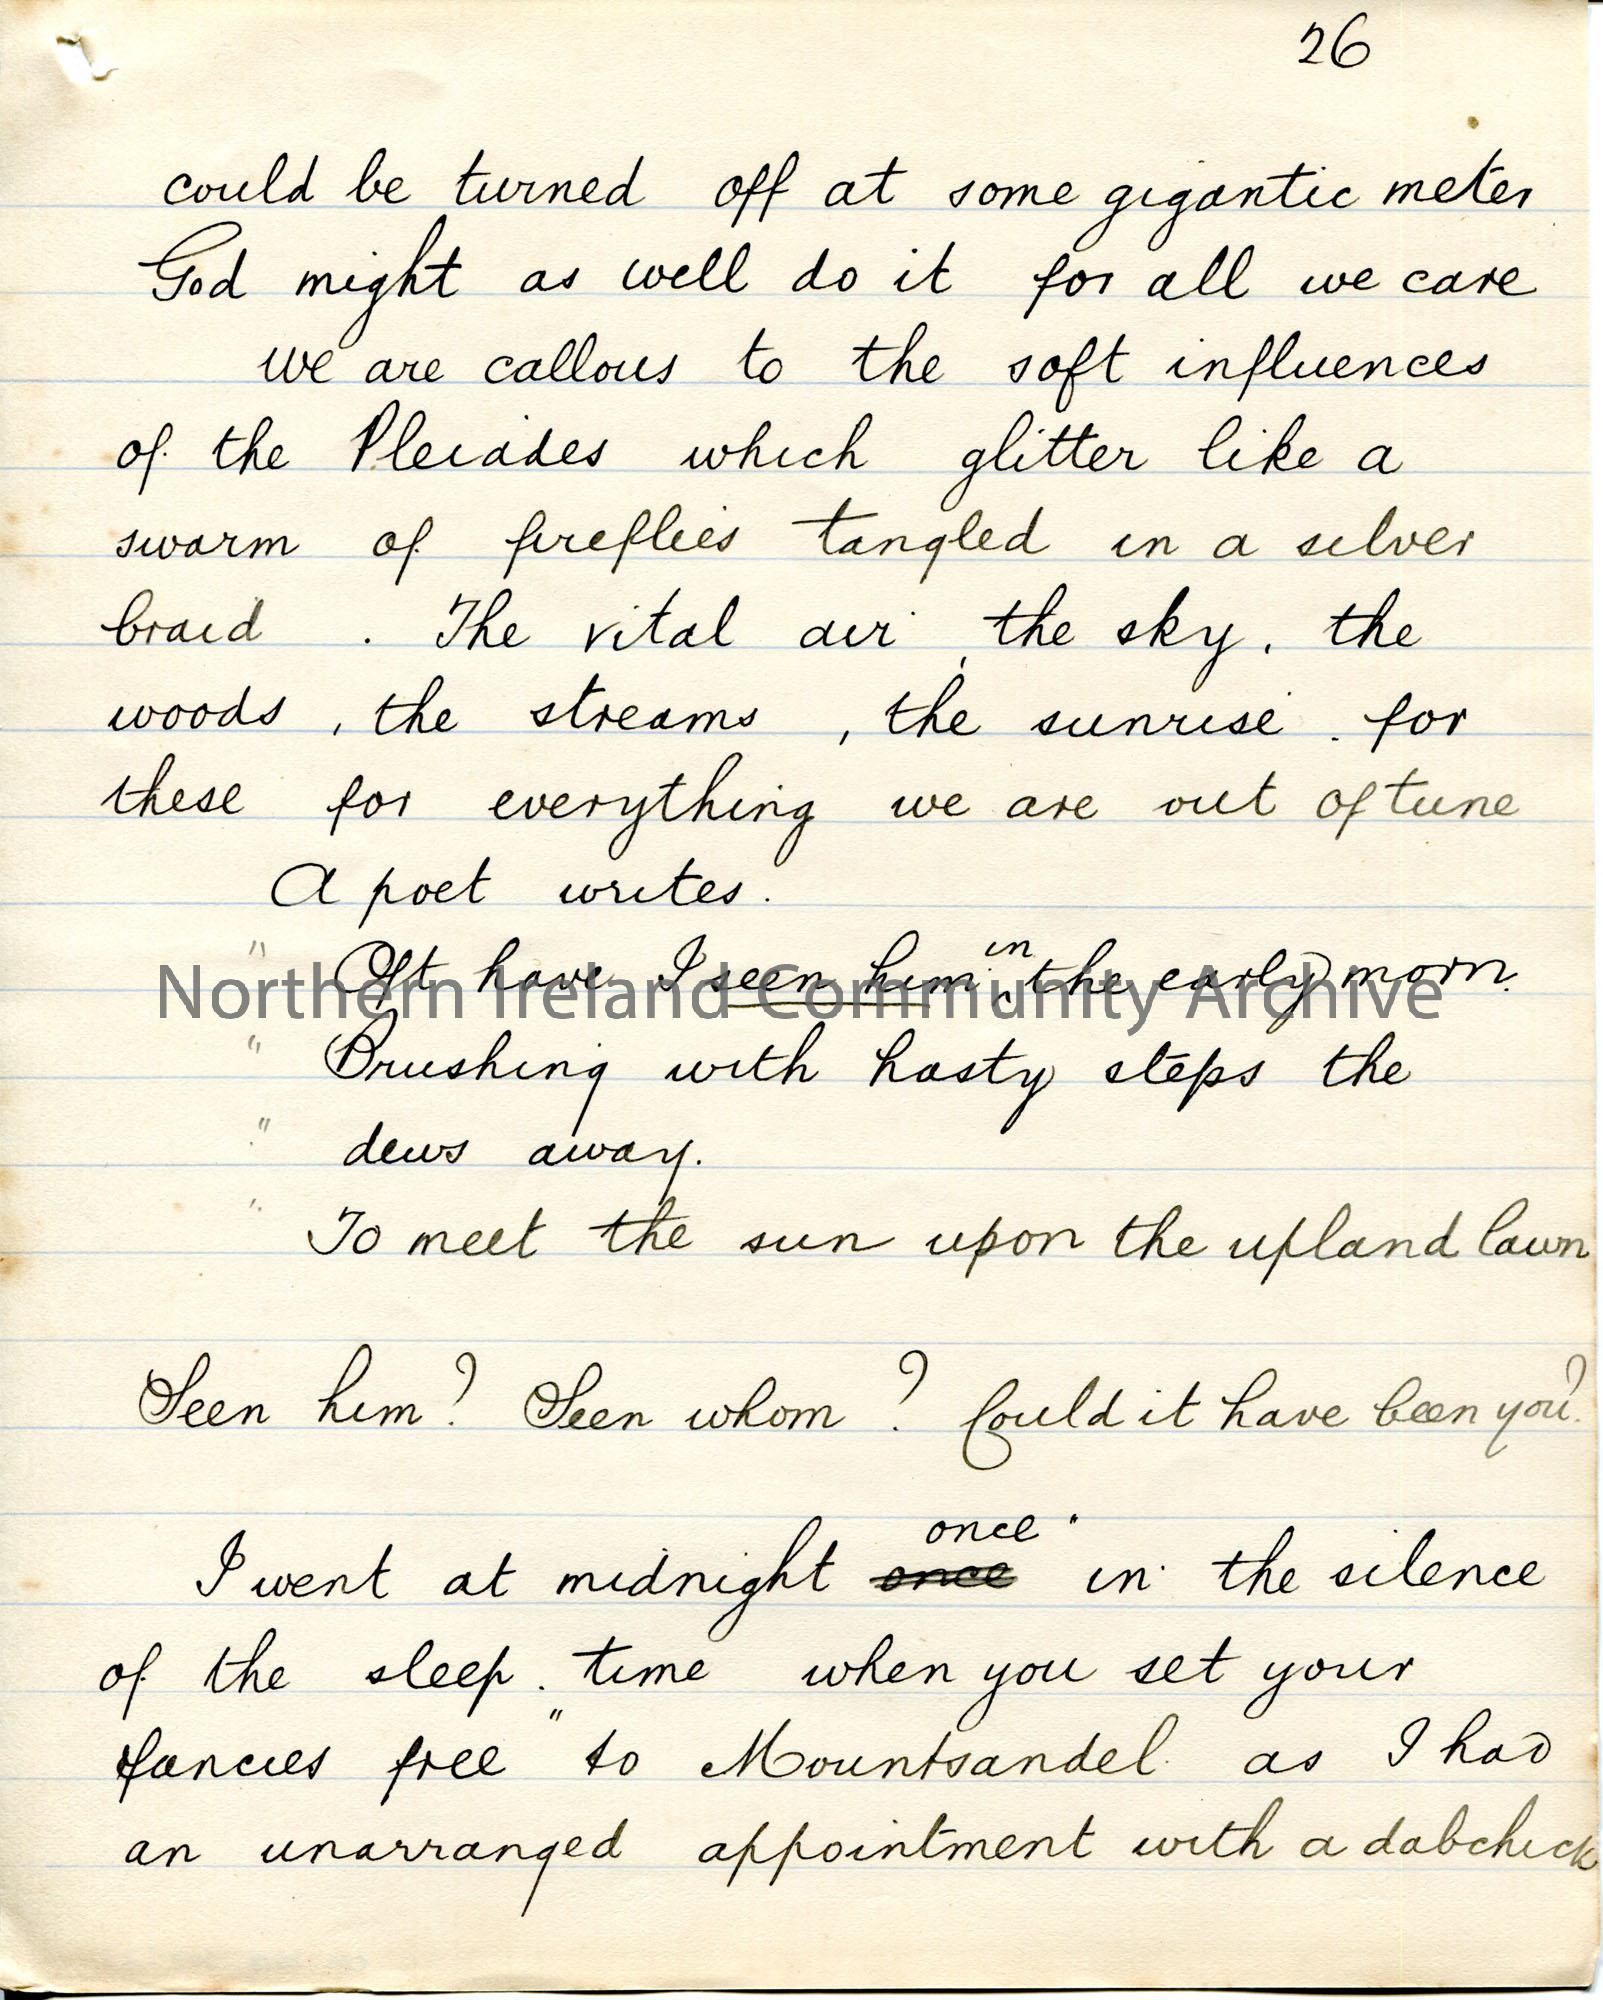 26
could be turned off at some gigantic meter
God might as well do it for all we care
we are callous to the soft influences
of the Pleiades which glitter like a
swarm of fireflies tangled in a silver
braid . The vital air , the sky , the
woods , the streams , the sunrise . for
these for everything we are out of tune
A poet writes .
" Oft have I seen him in the early morn .
" Brushing with hasty steps the
" dews away .
" To meet the sun upon the upland lawn
Northern Ireland Community Archive
Seen him ? Seen whom ? Could it have been you ?
I went at midnight once once " in the silence
of the sleep . time when you set your
fancies free " to Mountsandel as I had
an unarranged appointment with a dabchick